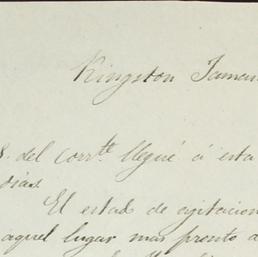 Kingston Jamai
8. del corrte llegué á esta
dias.
El estado de agitacion
aquel lugar mas pronto d